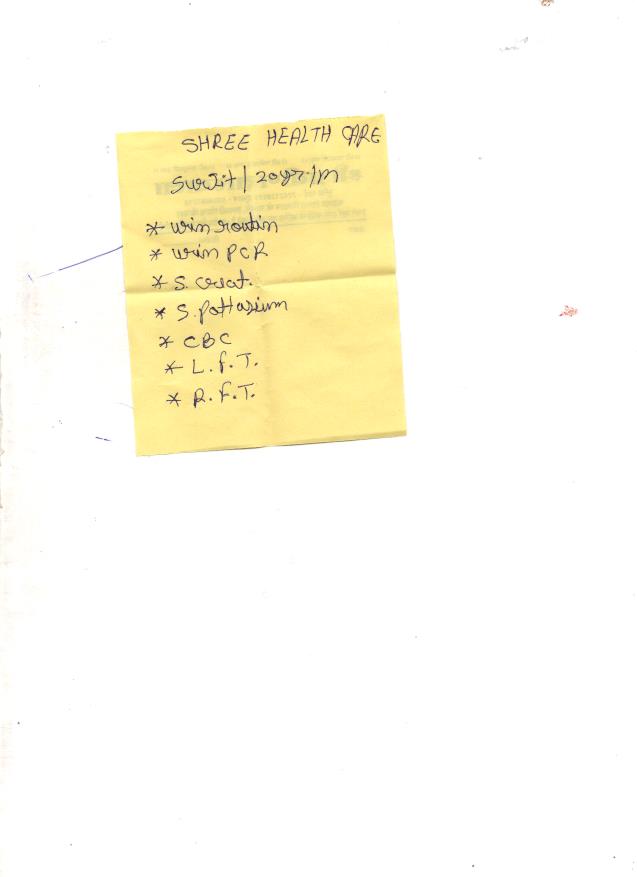 SHREE HEALTH CARE
Surjit | 20yr/m
* urin routin
* urin PCR
* S. creat.
* S. pottasium
* CBC
* L.f.T.
* R.f.T.